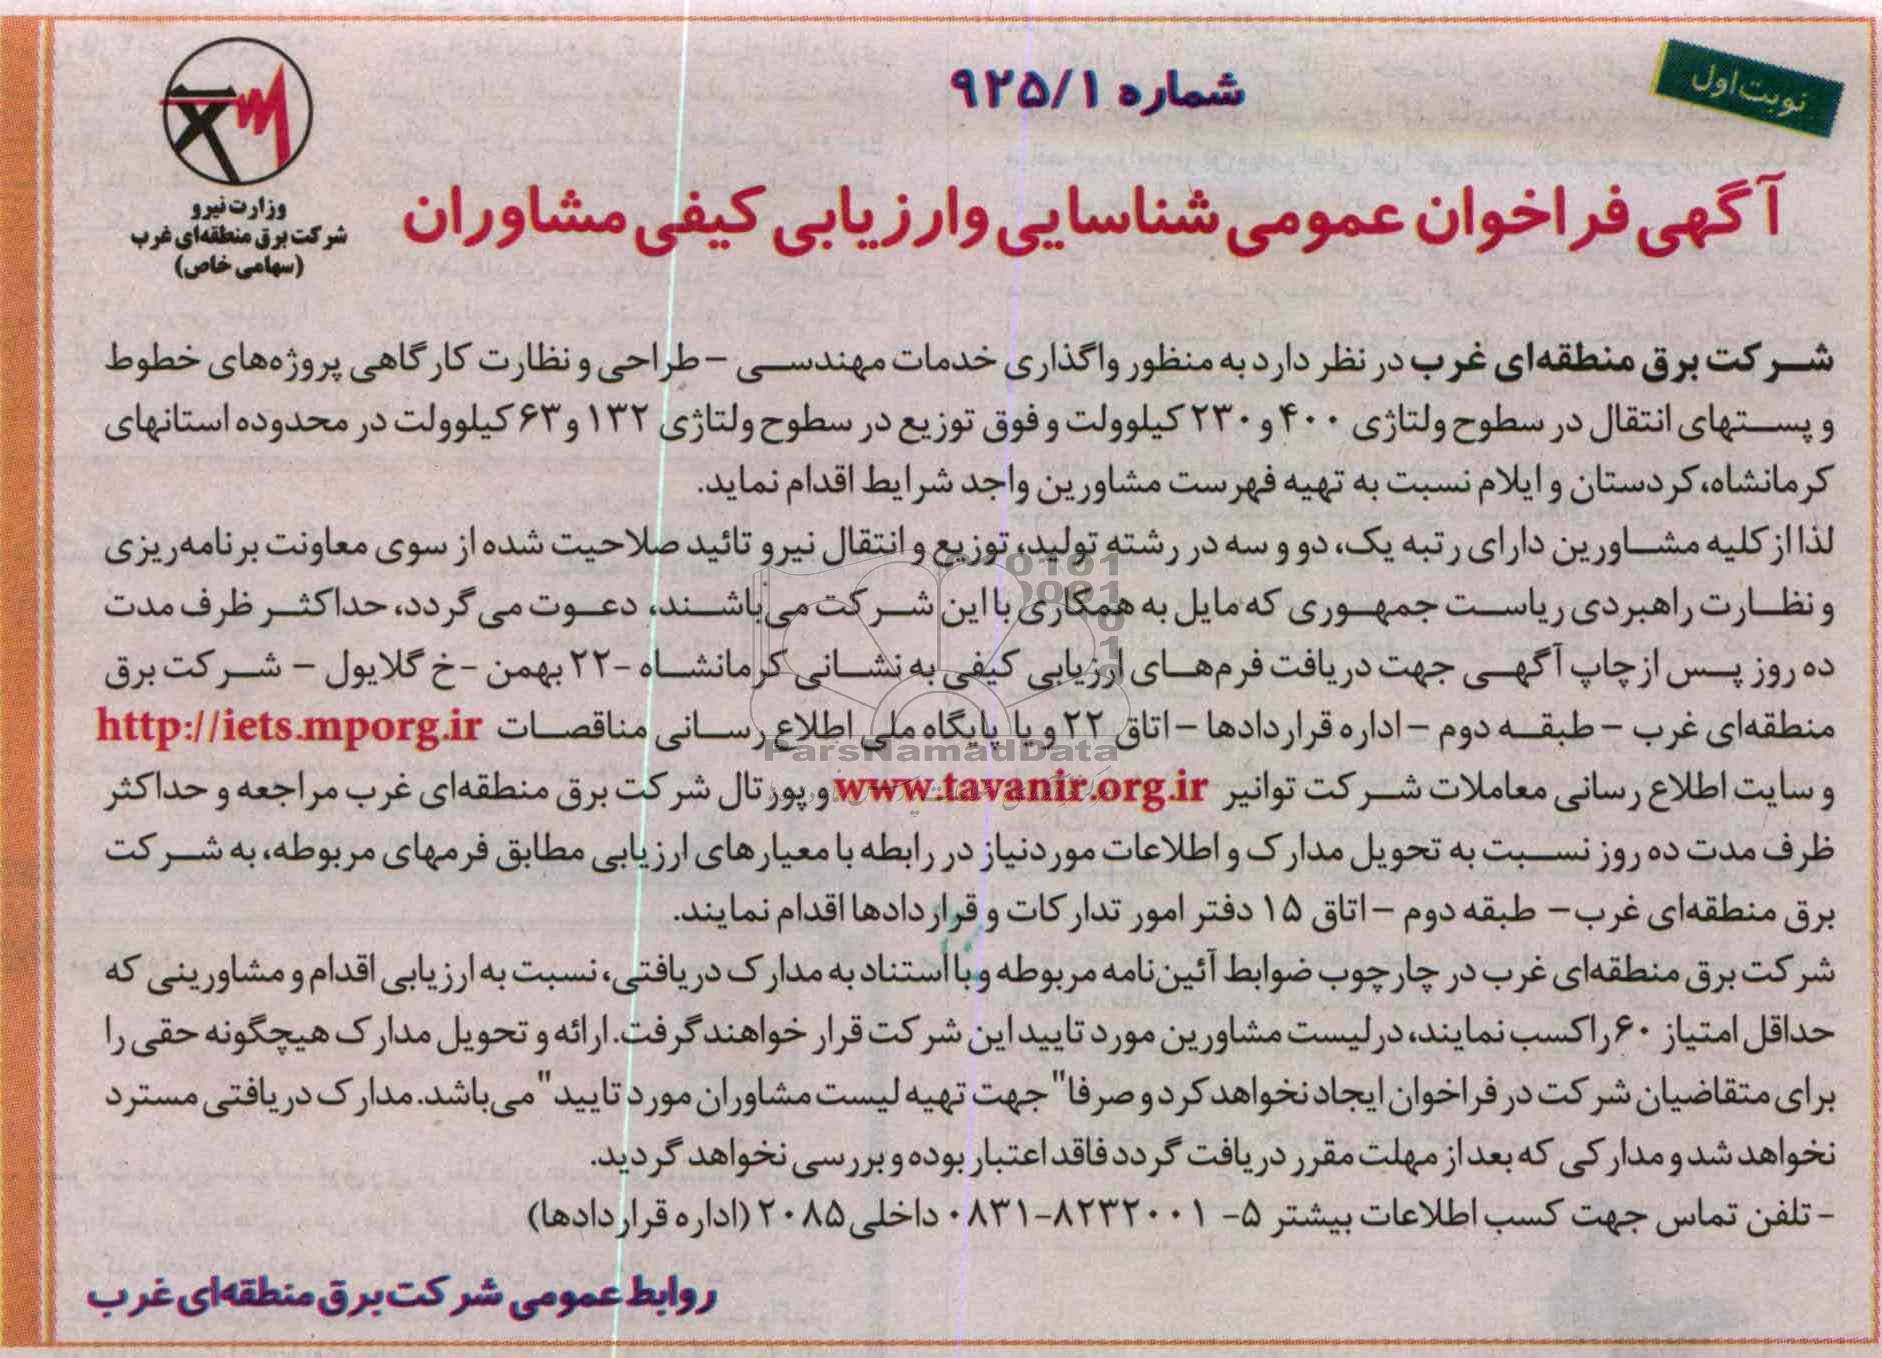 نوبت اول
شماره ۹۲۵/۱
وزارت نیرو
شرکت برق منطقه‌ای غرب
(سهامی خاص)
آگهی فراخوان عمومی شناسایی وارزیابی کیفی مشاوران
شرکت برق منطقه‌ای غرب در نظر دارد به منظور واگذاری خدمات مهندسی – طراحی و نظارت کارگاهی پروژه‌های خطوط
و پستهای انتقال در سطوح ولتاژی ۴۰۰ و ۲۳۰ کیلوولت و فوق توزیع در سطوح ولتاژی ۱۳۲ و ۶۳ کیلوولت در محدوده استانهای
کرمانشاه، کردستان و ایلام نسبت به تهیه فهرست مشاورین واجد شرایط اقدام نماید.
لذا از کلیه مشاورین دارای رتبه یک، دو و سه در رشته تولید، توزیع و انتقال نیرو تائید صلاحیت شده از سوی معاونت برنامه‌ریزی
و نظارت راهبردی ریاست جمهوری که مایل به همکاری با این شرکت می‌باشند، دعوت می‌گردد، حداکثر ظرف مدت
ده روز پس از چاپ آگهی جهت دریافت فرم‌های ارزیابی کیفی به نشانی کرمانشاه – ۲۲ بهمن – خ گلایول – شرکت برق
منطقه‌ای غرب – طبقه دوم – اداره قراردادها – اتاق ۲۲ و یا پایگاه ملی اطلاع رسانی مناقصات http://iets.mporg.ir
و سایت اطلاع رسانی معاملات شرکت توانیر www.tavanir.org.ir و پورتال شرکت برق منطقه‌ای غرب مراجعه و حداکثر
ظرف مدت ده روز نسبت به تحویل مدارک و اطلاعات موردنیاز در رابطه با معیارهای ارزیابی مطابق فرمهای مربوطه، به شرکت
برق منطقه‌ای غرب – طبقه دوم – اتاق ۱۵ دفتر امور تدارکات و قراردادها اقدام نمایند.
شرکت برق منطقه‌ای غرب در چارچوب ضوابط آئین‌نامه مربوطه و با استناد به مدارک دریافتی، نسبت به ارزیابی اقدام و مشاورینی که
حداقل امتیاز ۶۰ را کسب نمایند، در لیست مشاورین مورد تایید این شرکت قرار خواهند گرفت. ارائه و تحویل مدارک هیچگونه حقی را
برای متقاضیان شرکت در فراخوان ایجاد نخواهد کرد و صرفا "جهت تهیه لیست مشاوران مورد تایید" می‌باشد. مدارک دریافتی مسترد
نخواهد شد و مدارکی که بعد از مهلت مقرر دریافت گردد فاقد اعتبار بوده و بررسی نخواهد گردید.
- تلفن تماس جهت کسب اطلاعات بیشتر ۵- ۸۲۳۲۰۰۱-۰۸۳۱ داخلی ۲۰۸۵ (اداره قراردادها)
روابط عمومی شرکت برق منطقه‌ای غرب
ParsNamadData